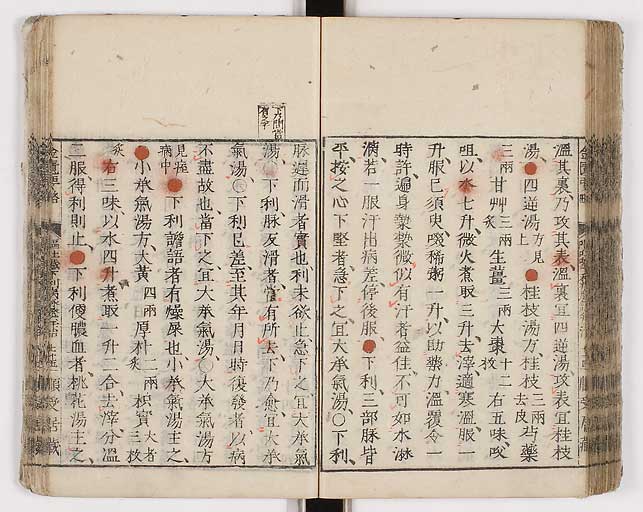 溫其裏乃攻其表溫裏宜四逆湯攻表宜桂枝
湯四逆湯方見上桂枝湯方桂枝三兩去皮芍藥
三兩甘艸三兩炙生薑三兩大棗十二枚右五味㕮
咀以水七升微火煮取三升去滓適寒溫服一
升服已須臾啜稀粥一升以助藥力溫覆令一
時許遍身漐漐微似有汗者益佳不可如水淋
漓若一服汗出病差停後服下利三部脉皆
平按之心下堅者急下之宜大承氣湯○下利
脉遲而滑者實也利未欲止急下之宜大承氣
湯○下利脉反滑者當有所去下乃愈宜大承
氣湯○下利已差至其年月日時復發者以病
不盡故也當下之宜大承氣湯○大承氣湯方
見痓病中下利譫語者有燥屎也小承氣湯主之
小承氣湯方大黃四兩厚朴二兩炙枳實大者三枚
炙右三味以水四升煮取一升二合去滓分溫
二服得利則止下利便膿血者桃花湯主之